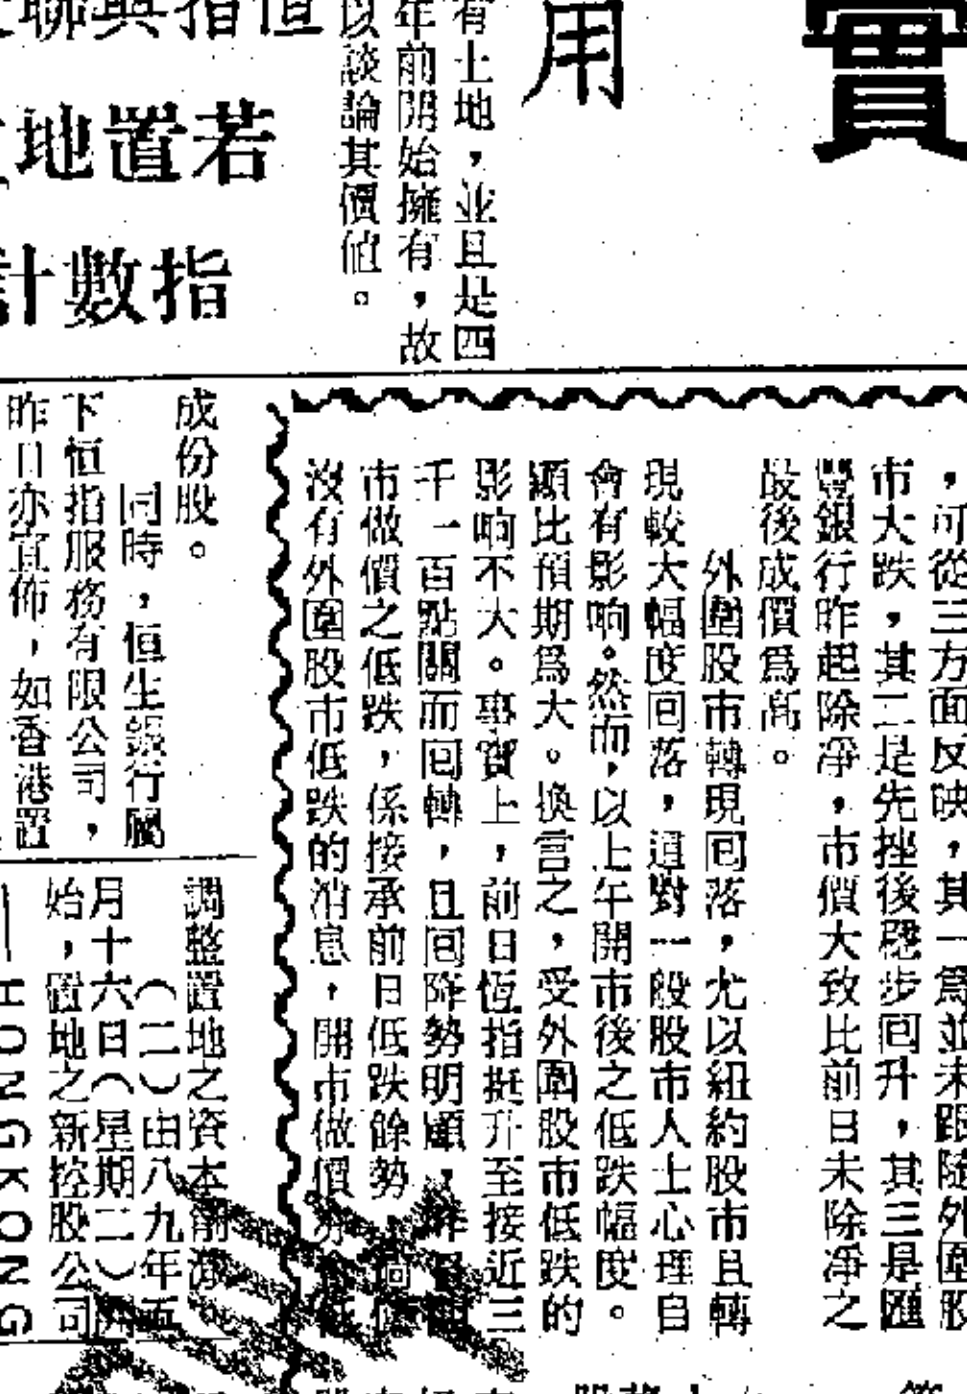 實
用
有土地，並且是四
年前開始擁有，故
以談論其價值。
恒指與聯
若置地
指數計
，可從三方面反映，其一爲並未跟隨外圍股
市大跌，其二是先挫後穩步回升，其三是匯
豐銀行昨起除淨，市價大致比前日未除淨之
最後成價爲高。
外圍股市轉現回落，尤以紐約股市且轉
現較大幅度回落，這對一般股市人士心理自
會有影响。然而，以上午開市後之低跌幅度。
顯比預期爲大。換言之，受外圍股市低跌的
影响不大。事實上，前日恆指挺升至接近三
千一百點關而回轉，且回降勢明顯，昨
市做價之低跌，係接承前日低跌餘勢，
沒有外圍股市低跌的消息，開市做價
成份股。
同時，恒生銀行屬
下恒指服務有限公司，
昨日亦宣佈，如香港置
調整置地之資本
（二）由八九年五
月十六日（星期二）
始，置地之新控股公司
HONGKONG